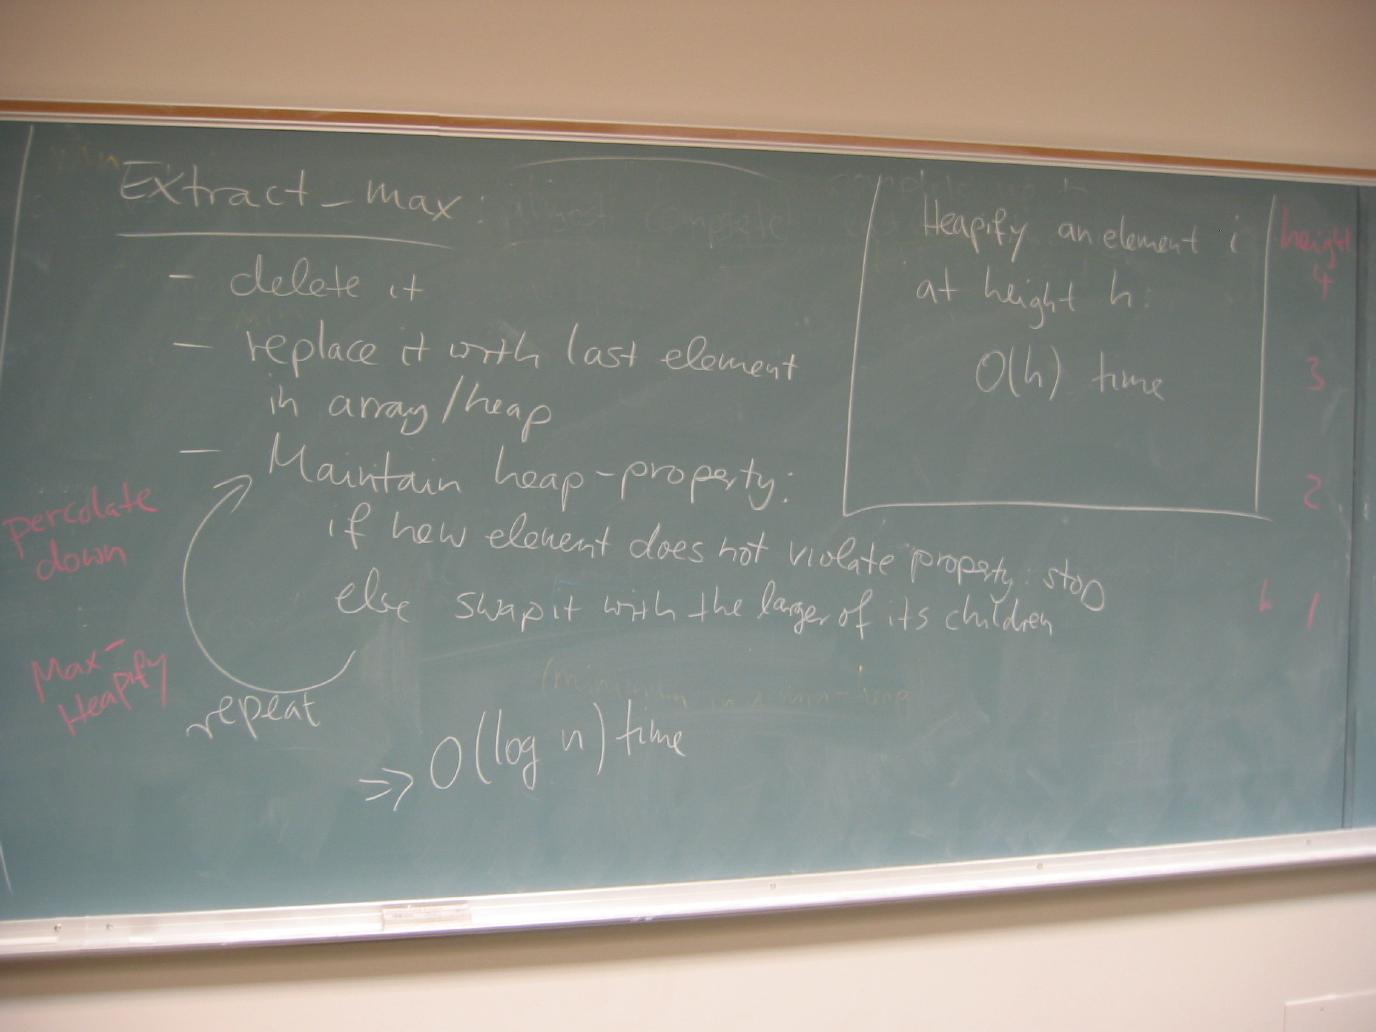 Extract_max:
- delete it
- replace it with last element
in array/heap
- Maintain heap-property:
if new element does not violate property: stop
else swap it with the larger of its children
repeat
=> O(log n) time
percolate
down
Max-
Heapify
Heapify an element i
at height h:
O(h) time
height
4
3
2
h 1